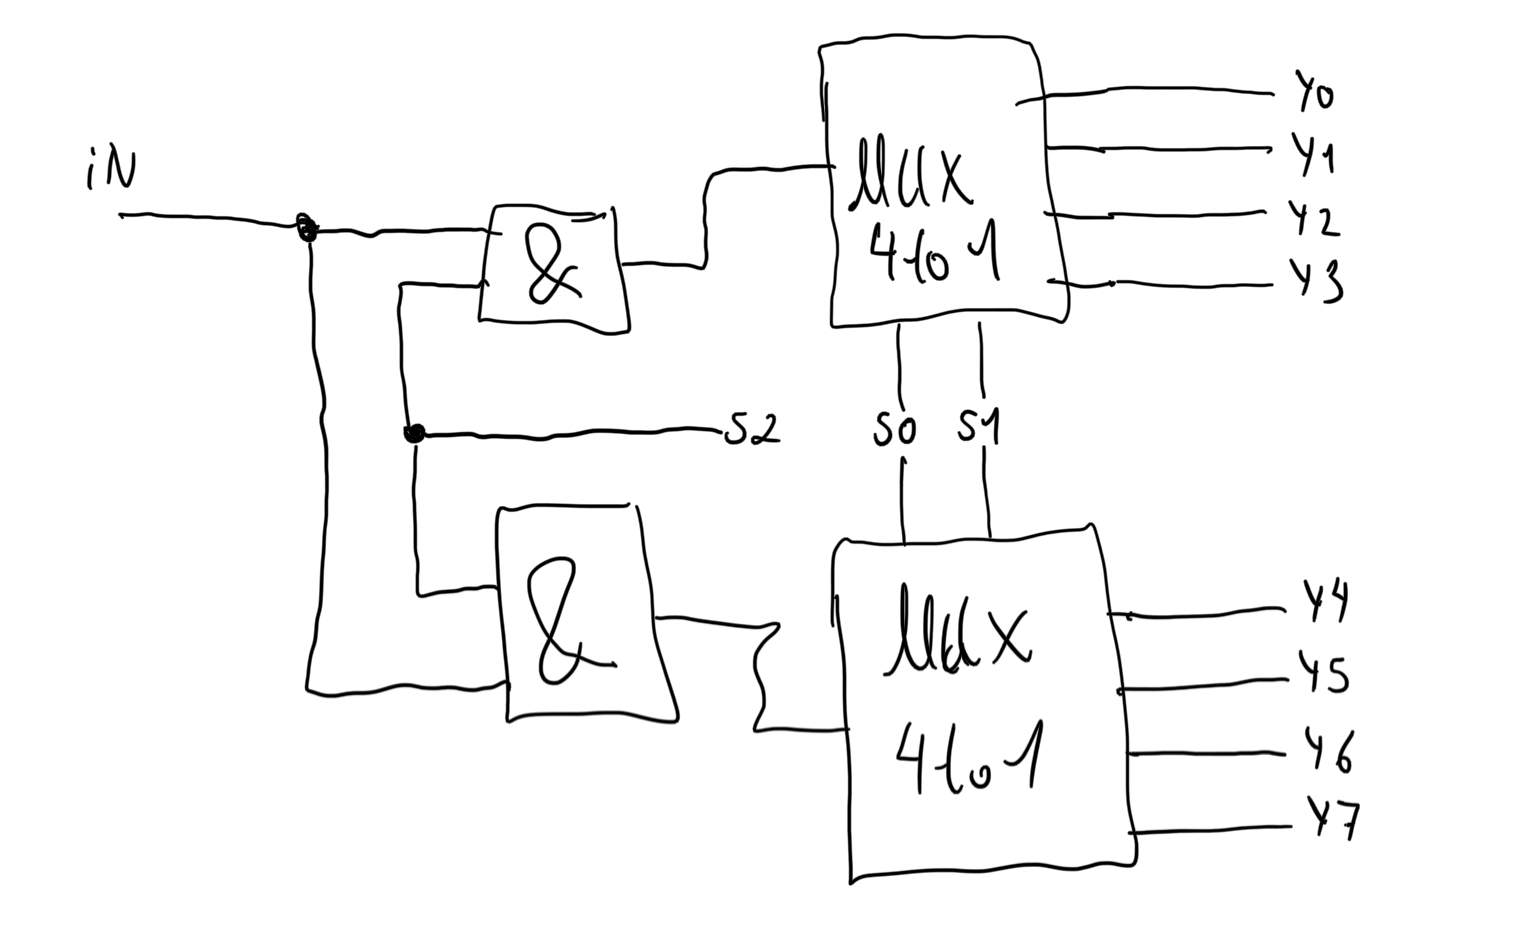 iN
&
MUX
4to1
Y0
Y1
Y2
Y3
S2
S0 S1
&
MUX
4to1
Y4
Y5
Y6
Y7